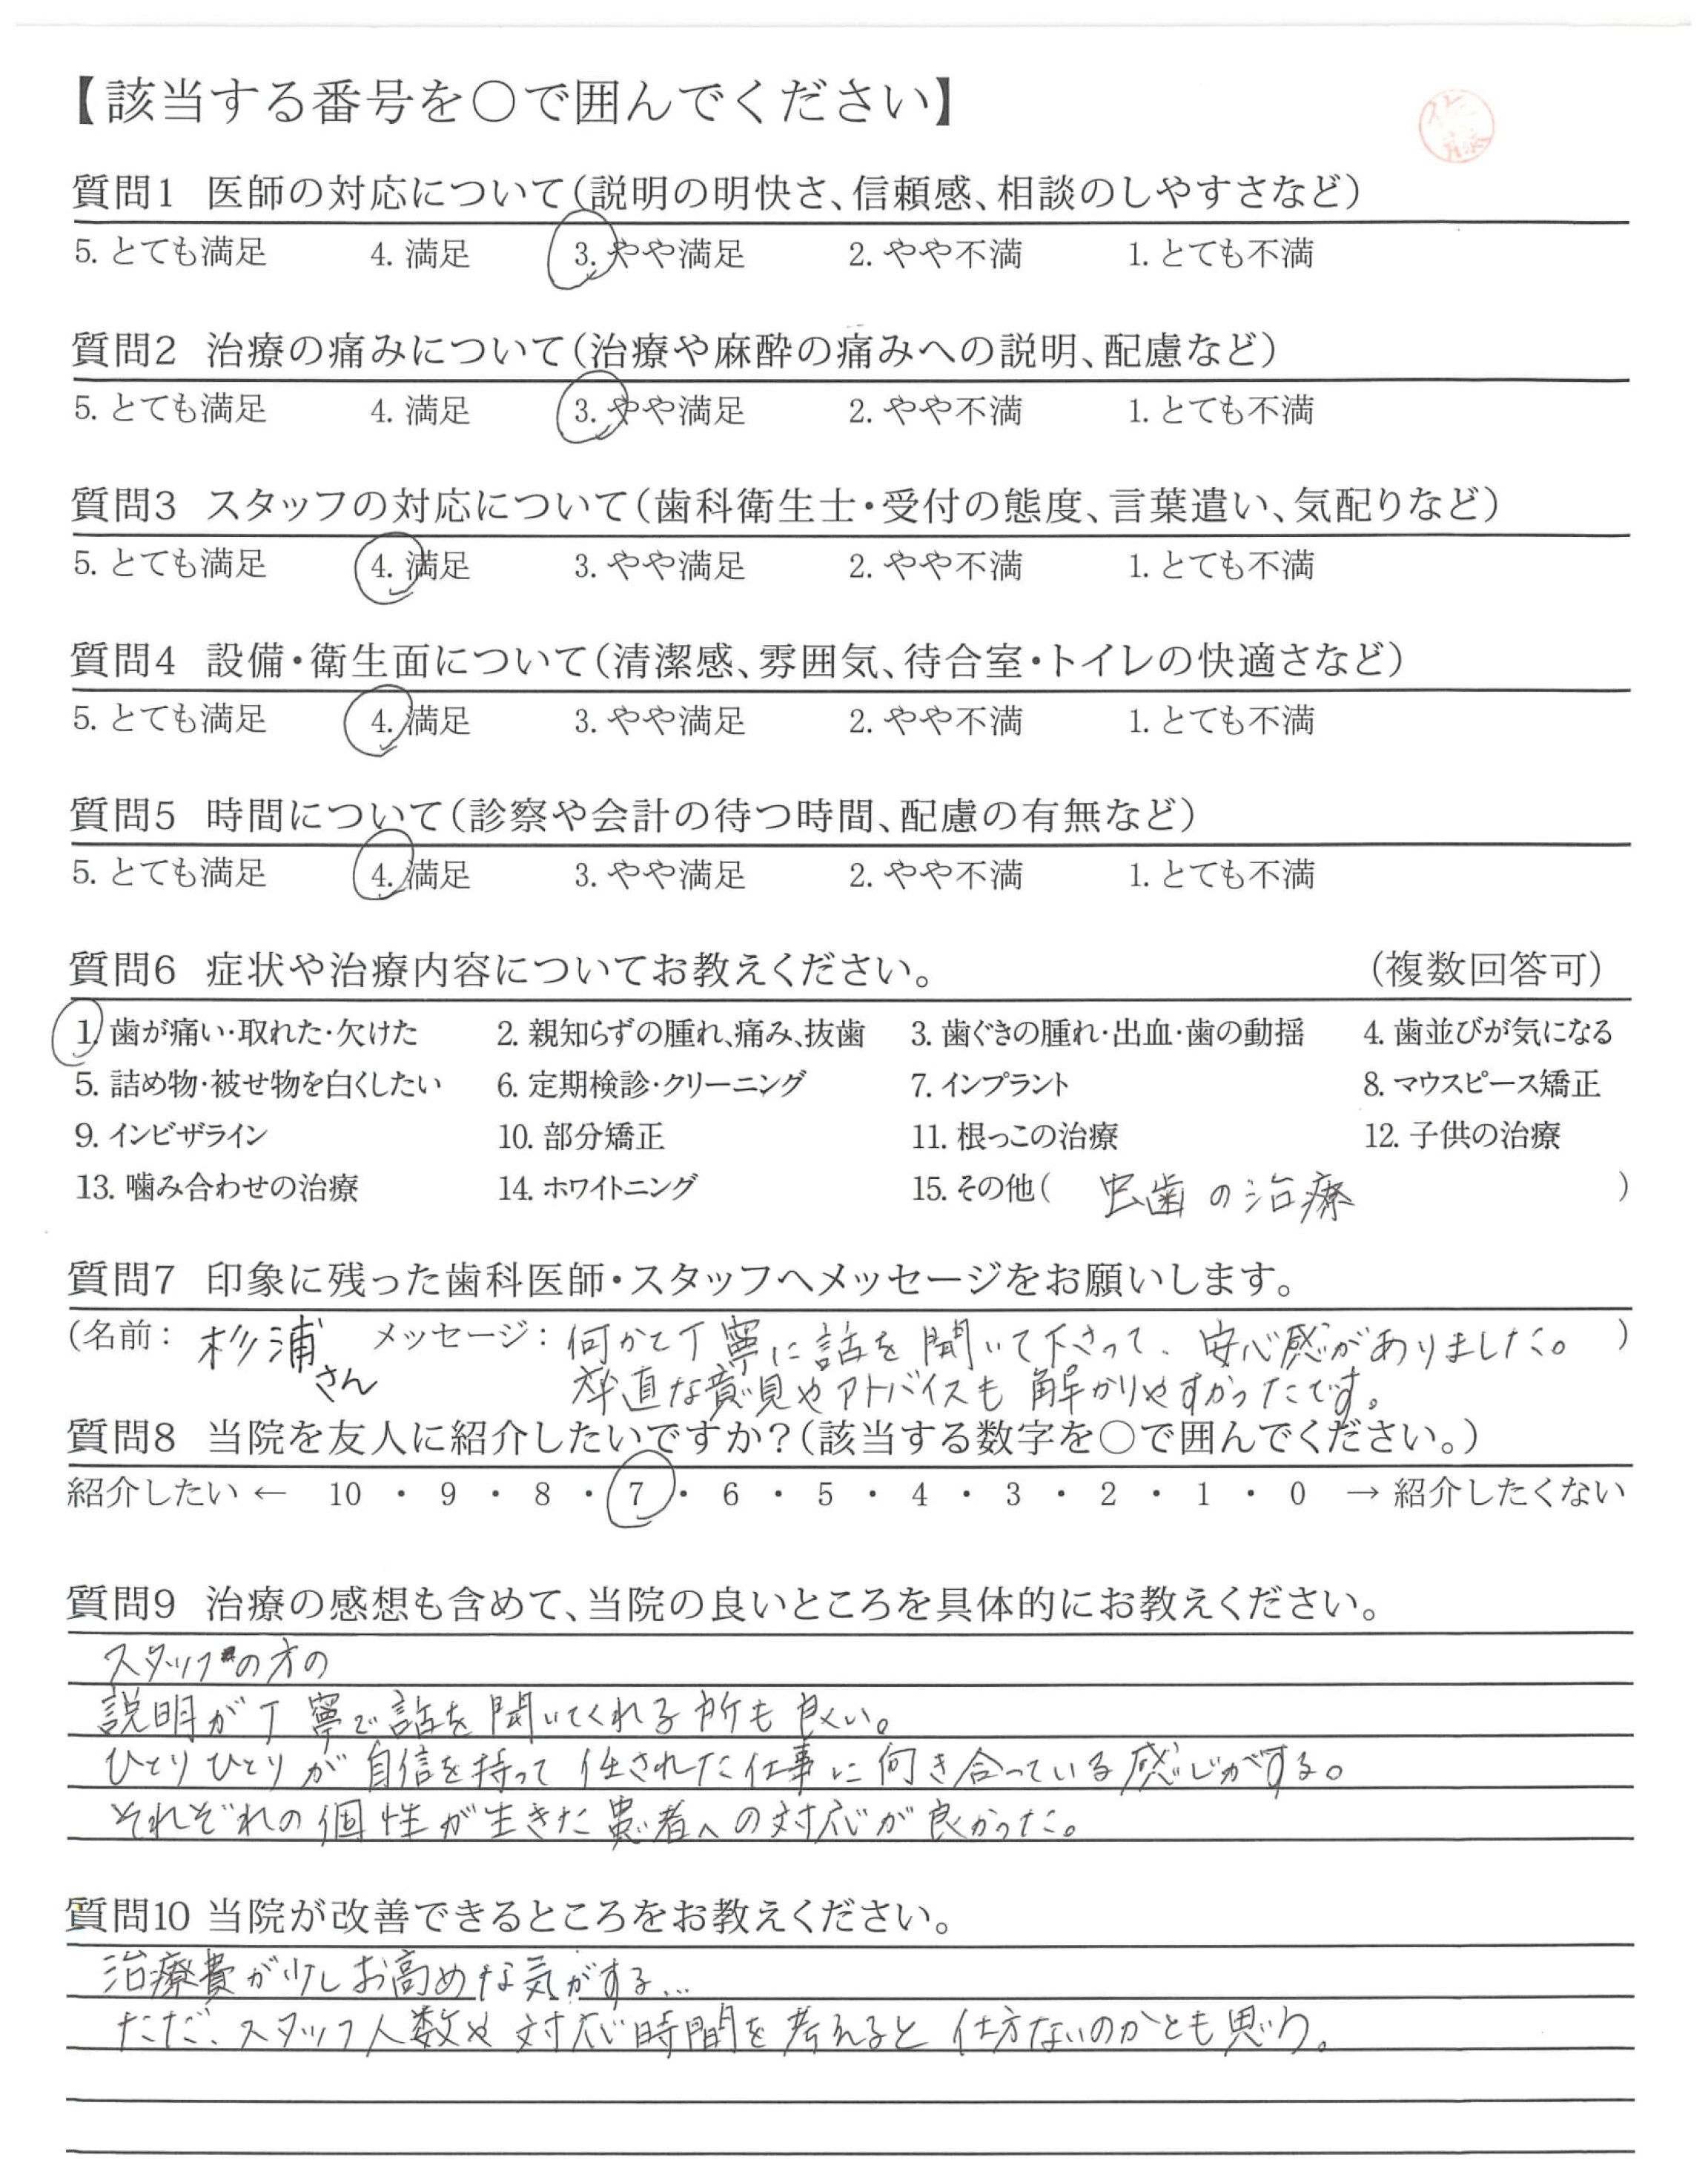 【該当する番号を〇で囲んでください】
質問1 医師の対応について(説明の明快さ、信頼感、相談のしやすさなど)
5. とても満足 4. 満足 3. やや満足 2. やや不満 1. とても不満
質問2 治療の痛みについて(治療や麻酔の痛みへの説明、配慮など)
5. とても満足 4. 満足 3. やや満足 2. やや不満 1. とても不満
質問3 スタッフの対応について(歯科衛生士・受付の態度、言葉遣い、気配りなど)
5. とても満足 4. 満足 3. やや満足 2. やや不満 1. とても不満
質問4 設備・衛生面について(清潔感、雰囲気、待合室・トイレの快適さなど)
5. とても満足 4. 満足 3. やや満足 2. やや不満 1. とても不満
質問5 時間について(診察や会計の待つ時間、配慮の有無など)
5. とても満足 4. 満足 3. やや満足 2. やや不満 1. とても不満
質問6 症状や治療内容についてお教えください。 (複数回答可)
1. 歯が痛い・取れた・欠けた 2. 親知らずの腫れ、痛み、抜歯 3. 歯ぐきの腫れ・出血・歯の動揺 4. 歯並びが気になる
5. 詰め物・被せ物を白くしたい 6. 定期検診・クリーニング 7. インプラント 8. マウスピース矯正
9. インビザライン 10. 部分矯正 11. 根っこの治療 12. 子供の治療
13. 噛み合わせの治療 14. ホワイトニング 15. その他( 虫歯の治療 )
質問7 印象に残った歯科医師・スタッフへメッセージをお願いします。
(名前: 杉浦さん メッセージ: 何かと丁寧に話を聞いて下さって、安心感がありました。 )
率直な意見やアドバイスも解かりやすかったです。
質問8 当院を友人に紹介したいですか?(該当する数字を〇で囲んでください。)
紹介したい ← 10 ・ 9 ・ 8 ・ 7 ・ 6 ・ 5 ・ 4 ・ 3 ・ 2 ・ 1 ・ 0 → 紹介したくない
質問9 治療の感想も含めて、当院の良いところを具体的にお教えください。
スタッフの方の
説明が丁寧で話を聞いてくれる所も良い。
ひとりひとりが自信を持って任された仕事に向き合っている感じがする。
それぞれの個性が生きた患者への対応が良かった。
質問10 当院が改善できるところをお教えください。
治療費が少しお高めな気がする…
ただ、スタッフ人数や対応時間を考えると仕方ないのかとも思う。